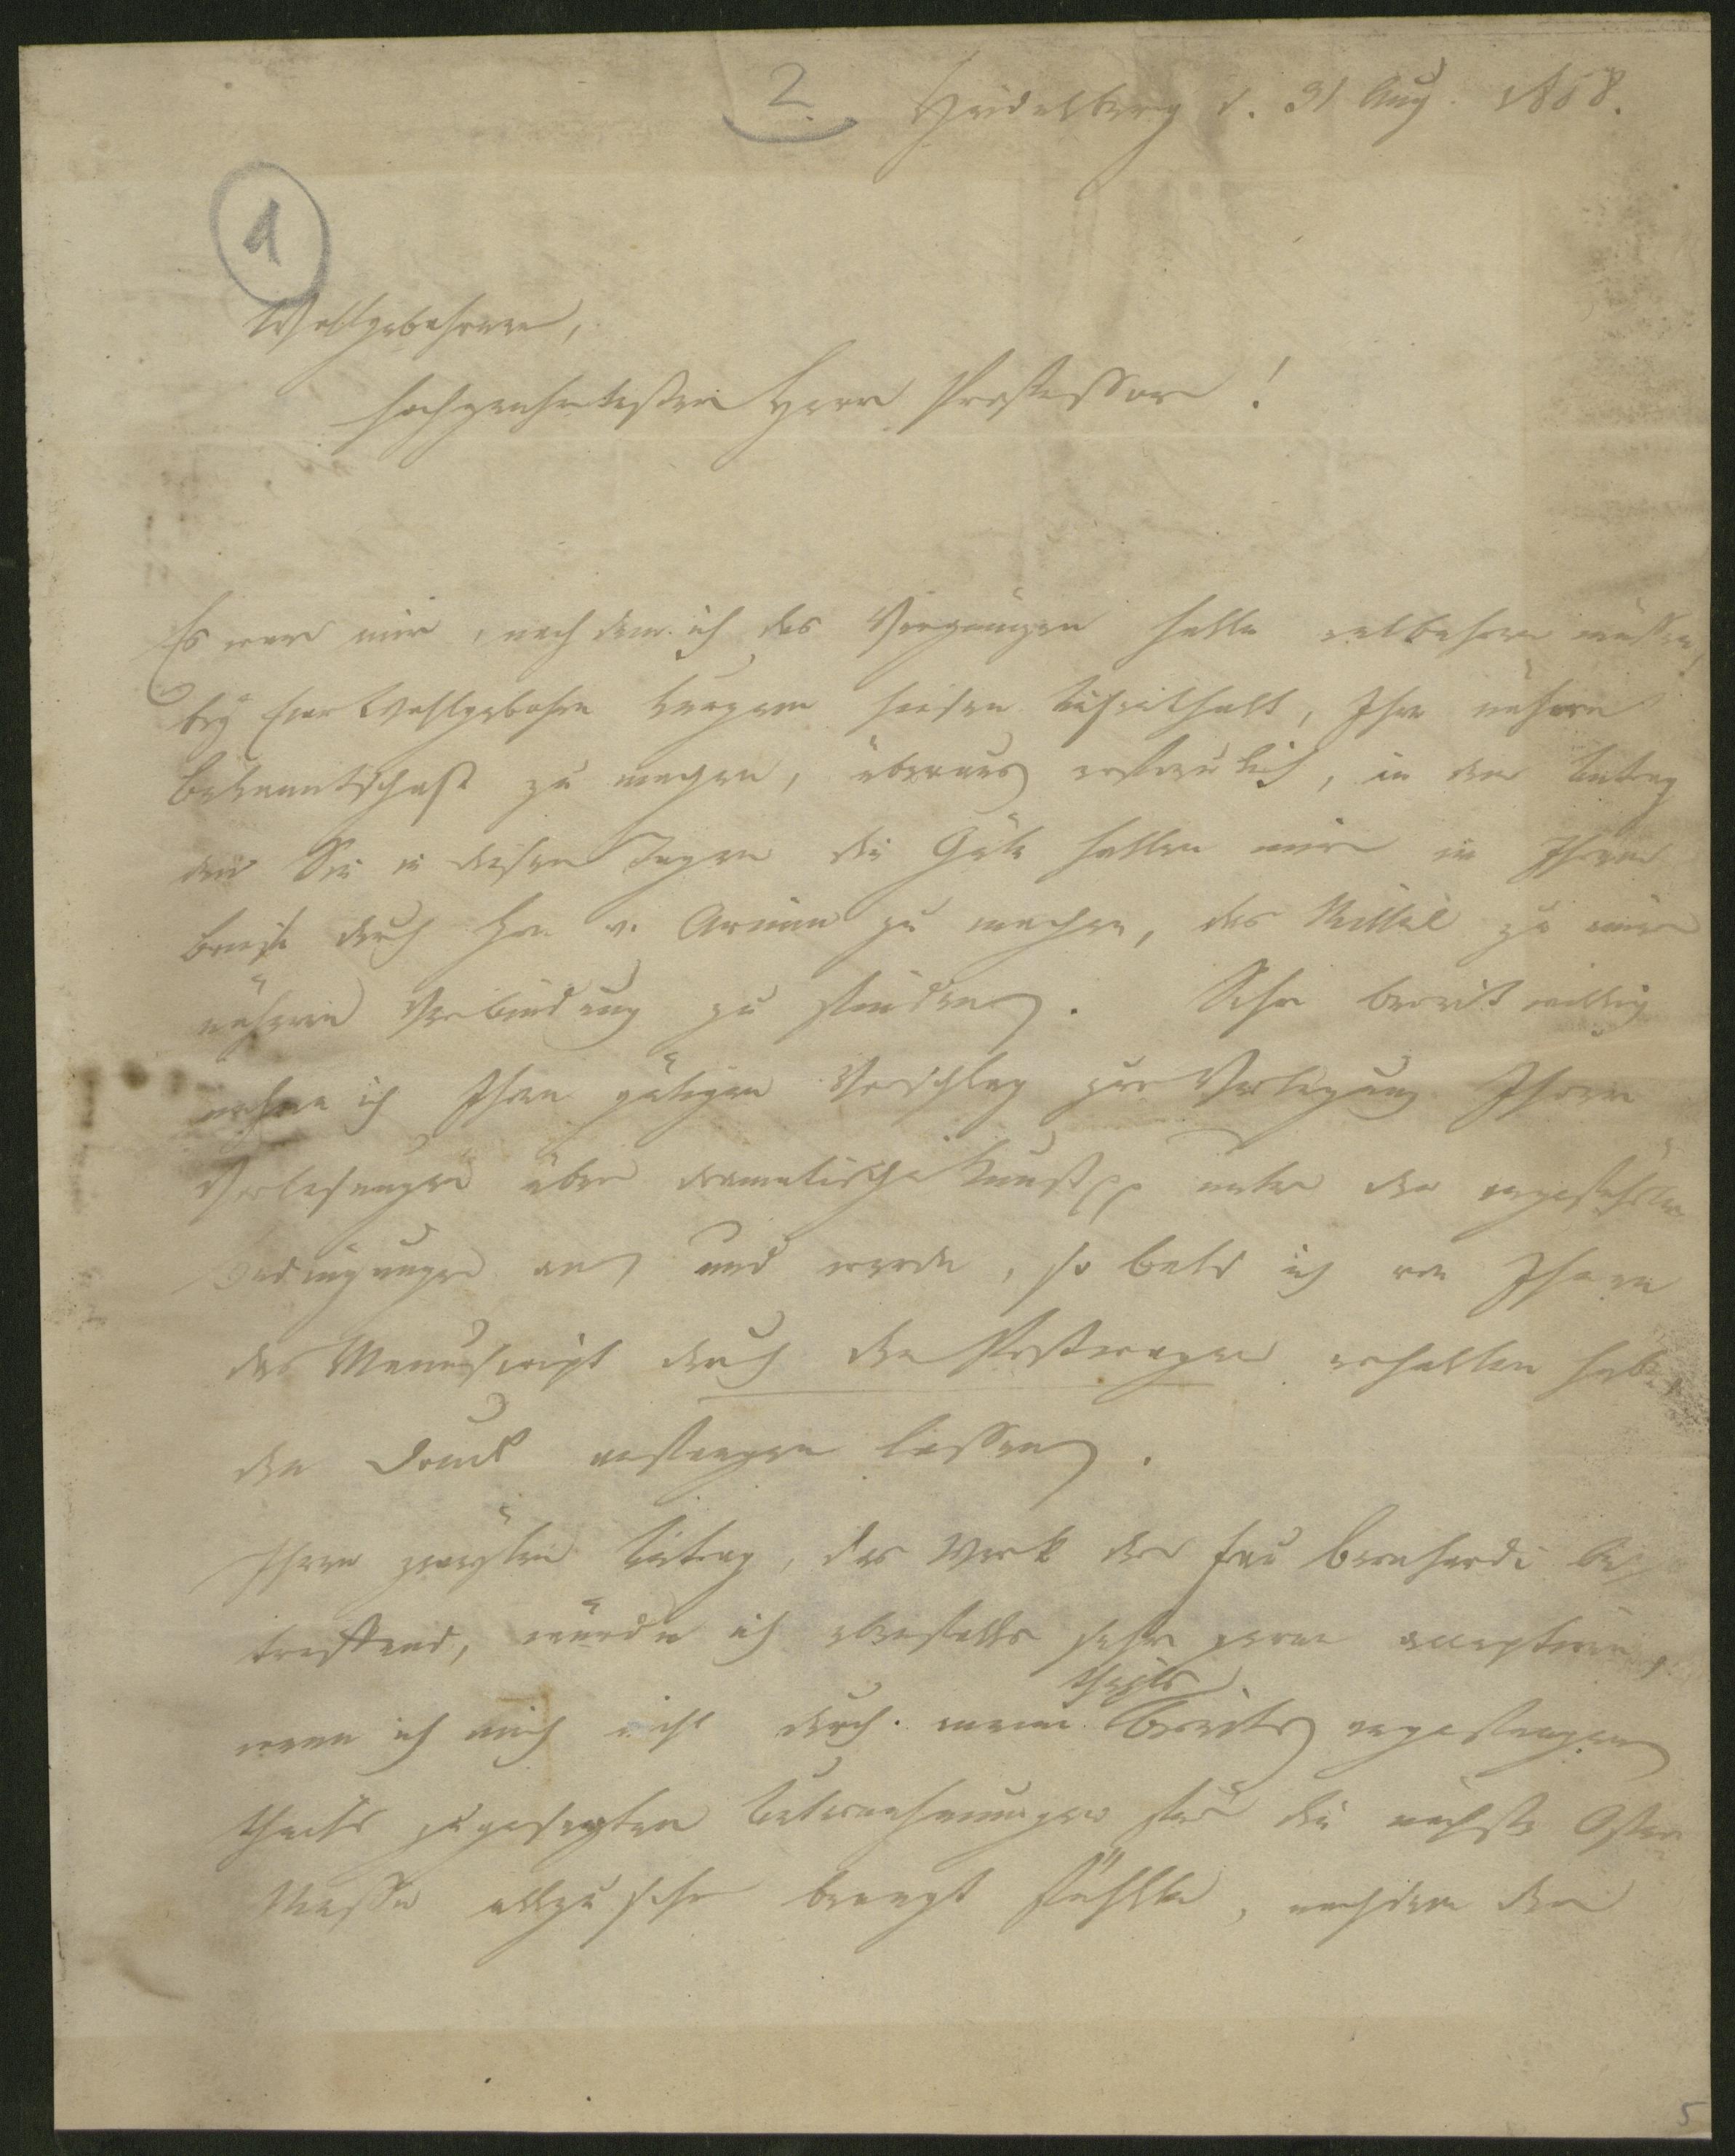 2
Heidelberg d. 31 Aug. 1808.
1
Wohlgebohrner,
Hochgeehrtester Herr Professor!
Es war mir, nachdem ich das Vergnügen hatte entbehren müssen,
bey Euer Wohlgebohrn kurzem hiesen Aufenthalt, Ihre nähere
Bekanntschaft zu machen, überaus erfreulich, in dem Antrag
den Sie in diesen Tagen die Güte hatten mir in Ihrem
Briefe durch Hrn. v. Arnim zu machen, das Mittel zu einer
nähern Verbindung zu finden. Sehr bereitwillig
nehme ich Ihren gütigen Vorschlag zur Verlegung Ihrer
Vorlesungen über dramatische Kunst pp unter den angeführten
Bedingungen an, und werde, so bald ich von Ihnen
das Manuscript durch den Postwagen erhalten habe,
den Druck anfangen lassen.
Ihren zweyten Antrag, das Werk der Frau Bernhardi be-
treffend, würde ich ebenfalls sehr gerne acceptiren,
wenn ich mich nicht durch meine theils bereits angefangenen
theils zugesagten Unternehmungen für die nächste Oster
Messe allzusehr beengt fühlte, nachdem der
5